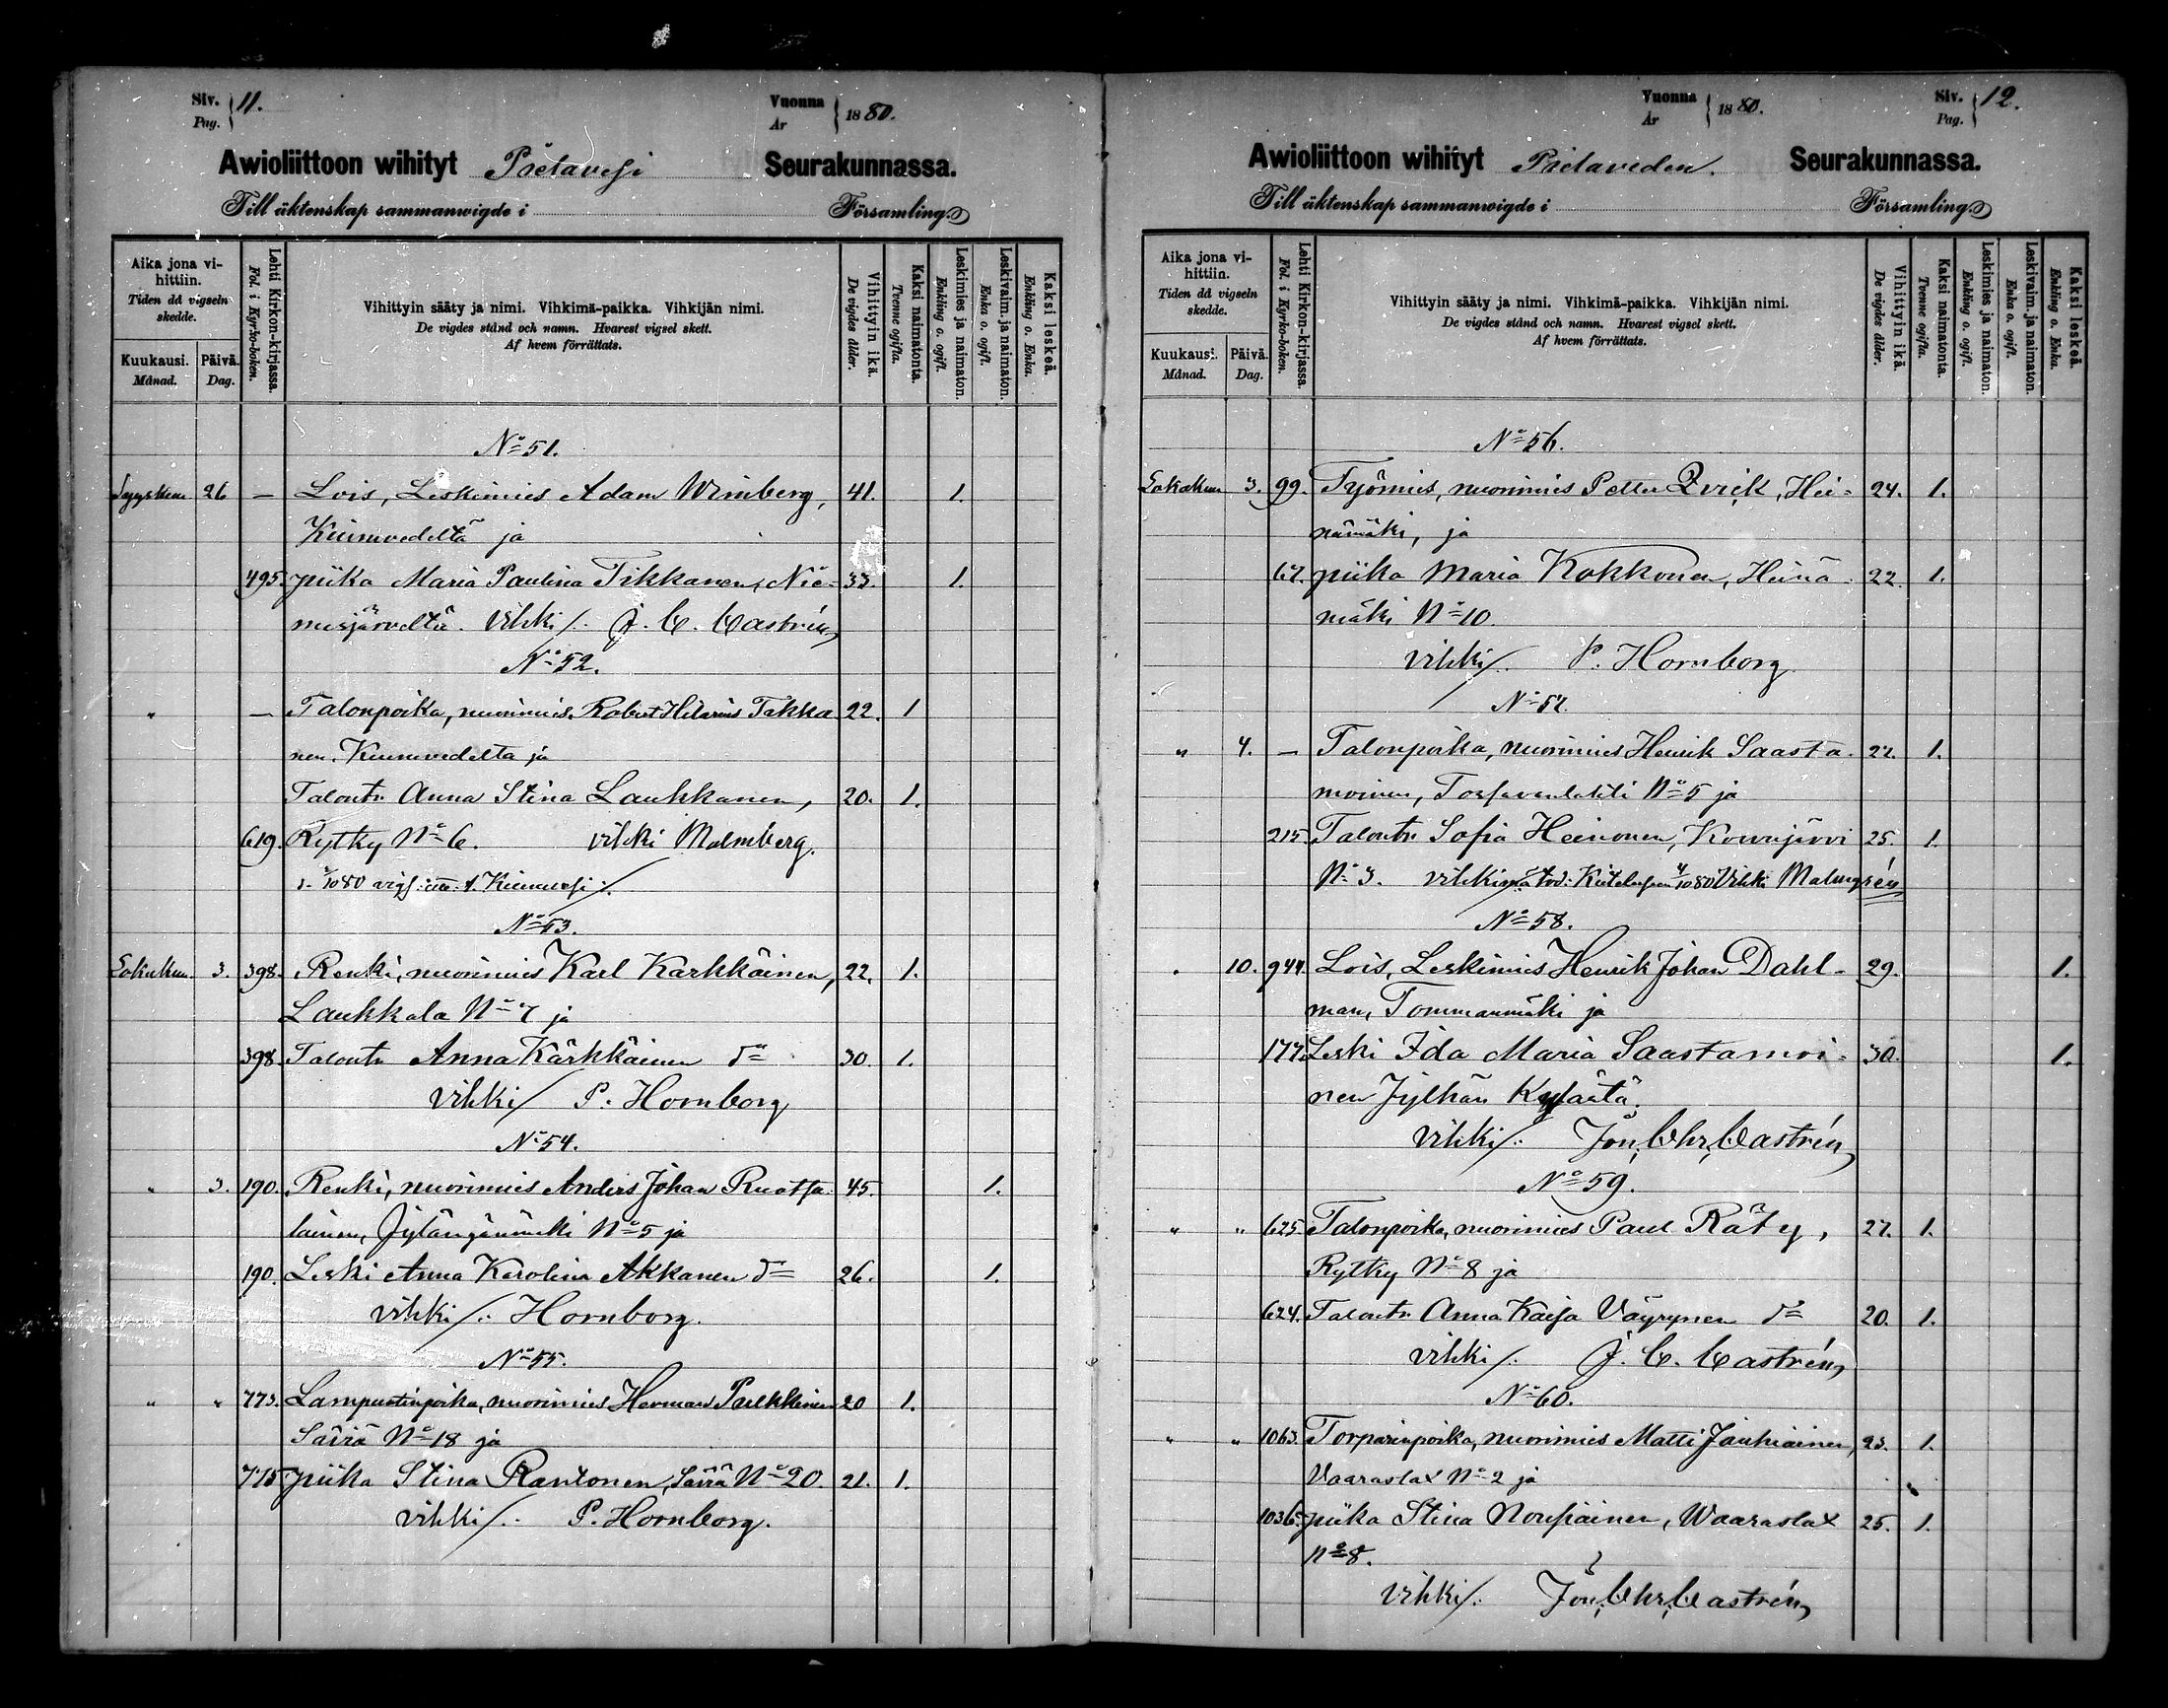 Siv. Pag. } 11.
Vuonna År } 1880.
Awioliittoon wihityt Pielavesi Seurakunnassa.
Till äktenskap sammanwigde i Församling.
Aika jona vihittiin.
Tiden då vigseln skedde.
Kuukausi. Månad.
Päivä. Dag.
Lehti Kirkon-kirjassa.
Fol. i Kyrko-boken.
Vihittyin sääty ja nimi. Vihkimä-paikka. Vihkijän nimi.
De vigdes stånd och namn. Hvarest vigsel skett.
Af hvem förrättats.
Vihittyin ikä.
De vigdes ålder.
Kaksi naimatonta.
Tvenne ogifta.
Leskimies ja naimaton.
Enkling o. ogift.
Leskivaim. ja naimaton.
Enka o. ogift.
Kaksi leskeä.
Enkling o. Enka.
No 51.
Syyskuu 26 — Lois, Leskimies Adam Winberg, 41. 1.
Kiuruvedeltä ja
495. piika Maria Paulina Tikkanen, Nie- 33. 1.
misjärveltä. Vihki /. J. C. Castrén
No 52.
" — Talonpoika, nuorimies Robert Hilarius Takka 22. 1
nen. Kiuruvedelta ja
Talontr Anna Stina Laukkanen, 20. 1.
619. Rytky No 6. vihki Malmberg.
No 53.
Lokakuu 3. 398. Renki, nuorimies Karl Karkkäinen, 22. 1.
Laukkala No 7 ja
398. Talontr Anna Kärkkäinen do 30. 1.
Vihki / P. Hornborg
No 54.
" 3. 190. Renki, nuorimies Anders Johan Ruotsa 45. 1.
lainen, Jylängänmäki No 5 ja
190. Leski Anna Karolina Akkanen do 26. 1.
vihki /: Hornborg.
No 55.
" " 773. Lampuotinpoika, nuorimies Herman Pulkkinen 20 1.
Säviä No 18 ja
775 piika Stina Rantonen, Säviä No 20. 21. 1.
vihki /: P. Hornborg.
Vuonna År } 1880.
Siv. Pag. } 12.
Awioliittoon wihityt Pielaveden. Seurakunnassa.
Till äktenskap sammanwigde i Församling.
Aika jona vihittiin.
Tiden då vigseln skedde.
Kuukausi. Månad.
Päivä. Dag.
Lehti Kirkon-kirjassa.
Fol. i Kyrko-boken.
Vihittyin sääty ja nimi. Vihkimä-paikka. Vihkijän nimi.
De vigdes stånd och namn. Hvarest vigsel skett.
Af hvem förrättats.
Vihittyin ikä.
De vigdes ålder.
Kaksi naimatonta.
Tvenne ogifta.
Leskimies ja naimaton.
Enkling o. ogift.
Leskivaim. ja naimaton.
Enka o. ogift.
Kaksi leskeä.
Enkling o. Enka.
No 56.
Lokakuu 3. 99. Työmies, nuorimies Petter Qvick, Hei- 24. 1.
nämäki, ja
67. piika Maria Kokkonen, Heinä- 22. 1.
mäki No 10.
vihki /. P. Hornborg
No 57.
" 4. — Talonpoika, nuorimies Henrik Saasta- 22. 1.
moinen, No 5 ja
215. Talontr Sofia Heinonen, Koivujärvi 25. 1.
No 3. Vihki Malmgrén
No 58.
" 10. 944. Lois, Leskimies Henrik Johan Dahl- 29. 1.
man, Tommanmäki ja
177. Leski Ida Maria Saastamoi- 30. 1.
nen Jylhän Kylästä.
vihki /: Jon, Chr, Castrén
No 59.
" " 625. Talonpoika, nuorimies Paul Räty, 27. 1.
Rytky No 8 ja
624. Talontr Anna Kaisa Väyrynen do 20. 1.
vihki /. J. C. Castrén
No 60.
" " 1063. Torparinpoika, nuorimies Matti Jauhiainen, 23. 1.
Vaaraslax No 2 ja
1036. piika Stina Nousiainen, Waaraslax 25. 1.
No 8.
vihki /: Jon, Chr, Castrén